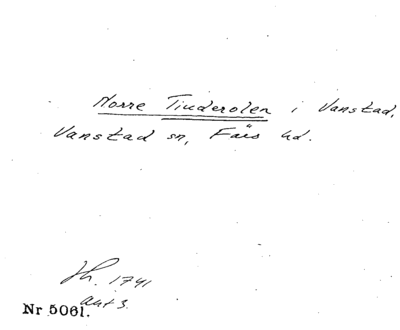 Norre Tinderolen i Vanstad,
Vanstad sn, Färs hd.
Jh. 1741
akt 3.
Nr 5061.